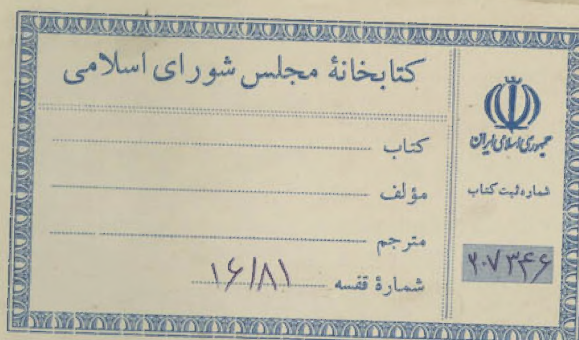 کتابخانهٔ مجلس شورای اسلامی
کتاب
مؤلف
مترجم
شمارهٔ قفسه ۱۶/۸۱
جمهوری اسلامی ایران
شماره ثبت کتاب
۲۰۷۳۴۶